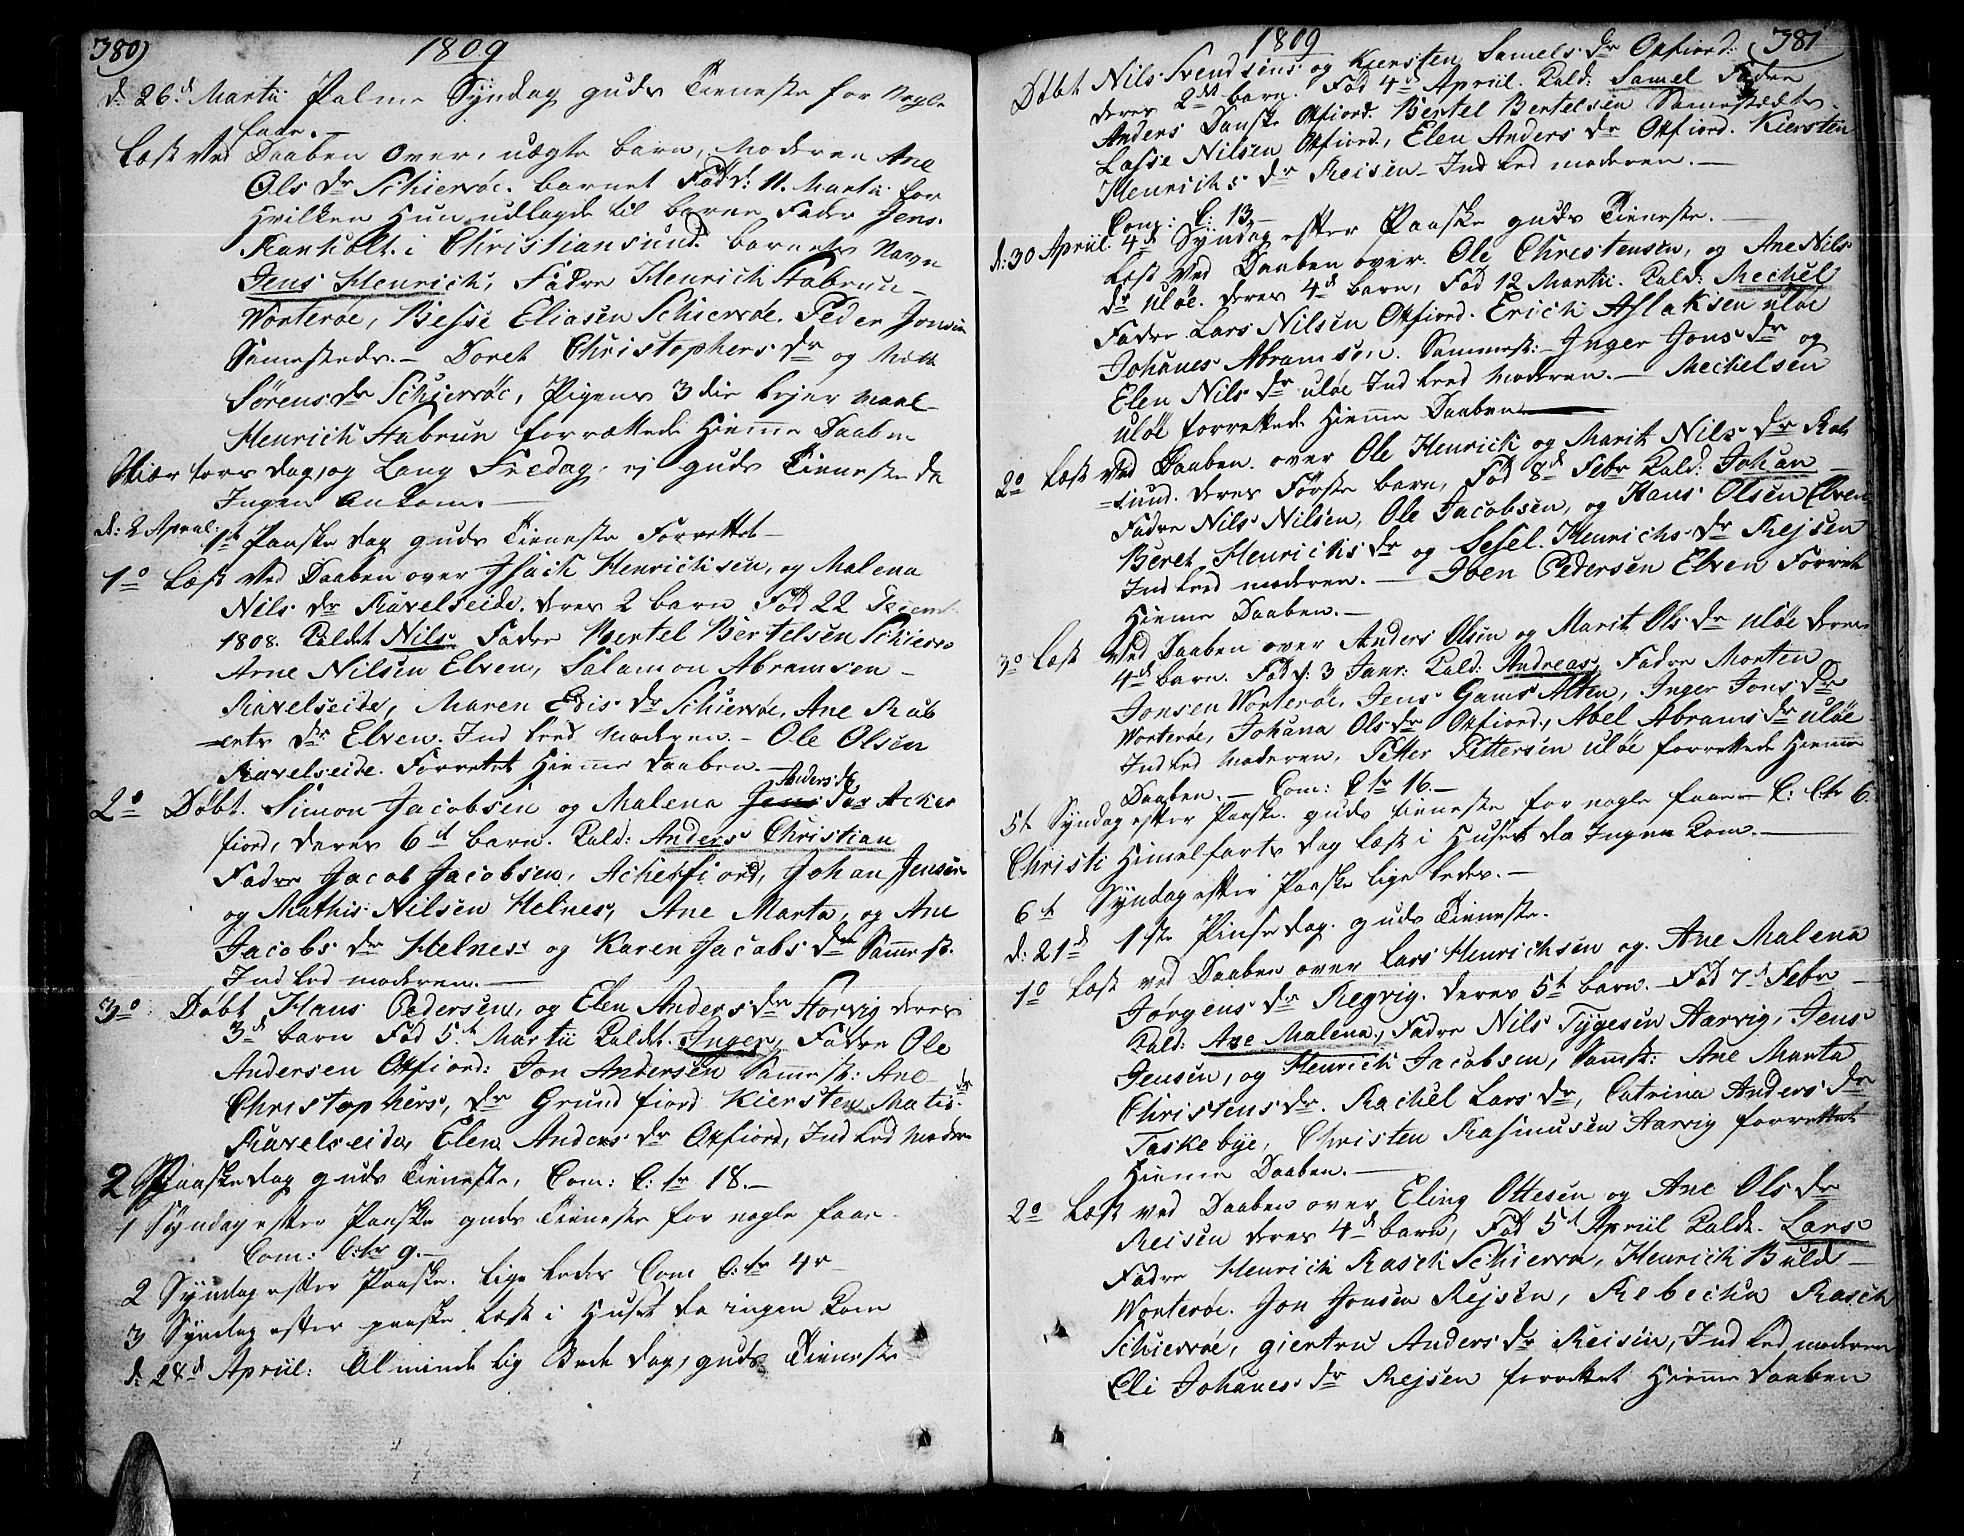 380)
1809
d: 26d Martii Palme Syndag guds Tieneste for Nogle
faae. —
Læst Ved Daaben Over, uægte barn, Moderen Ane
Ols dr Schiervöe. barnet Fød d: 11. Martii for
Hvilken Hun udlagde til barne Fader Jens
Ranholt i Christiansund. barnets Navn
Jens Henrich, Fadre Henrich Habrun
Worteröe, Besse Eliasen Schiervöe. Peder Jonsen
Sammesteds. — Doret Christophers dr og Mætte
Sörens dr Schiervöe, Pigens 3die Lejer maal
Henrich Habrun forrættede Hiemme Daaben
Skiær tors dag, og Lang Fredag, ej guds Tieneste da
Ingen Ankom. —
d: 2 April: 1st Paaske dag guds Tieneste Forrettet —
1o Læst Ved Daaben over Isach Henrichsen, og Malena
Nils dr Ravelseide. deres 2 barn Fød 22 Decemb
1808. Kaldet Nils Fadre Bertel Bertelsen Schiervö
Arne Nilsen Elven, Salamon Abramsen —
Ravelseide, Maren Edis dr Schiervöe, Ane Rub
=erts dr Elven. Ind Led Moderen. — Ole Olsen
Ravelseide. Forrettet Hiemme daaben. —
Anders dr
2o Døbt. Simon Jacobsen og Malena Acker
fiord, deres 6d barn. Kald: Anders Christian
Fadre Jacob Jacobsen, Ackerfiord, Johan Jensen
og Mathis Nilsen Helnes, Ane Marta, og Ane
Jacobs dr Helnes og Karen Jacobs dr Sammest:
Ind Led moderen. —
3o: Døbt Hans Pedersen, og Elen Anders dr Storvig deres
3d barn Fød 5t Martii Kaldet. Inger, Fadre Ole
Andersen Oxfiord: Jon Andersen Sammest: Ane
Christophers, dr Grundfiord Kiersten Matis dr
Ravelseide, Elen Anders dr Oxfiord, Ind Led Moder
2 Paaske dag guds Tieneste, Com: C: tr 18. —
1 Syndag efter Paaske guds Tieneste for nogle faae
Com: C: tr 9. —
2 Syndag efter Paaske. lige ledes Com C: tr 4r
3 Syndag efter paaske Læst i Huset da ingen Kom
d: 28d Apriil: Almindelig Bede dag, guds Tieneste
1809
381
Døbt Nils Svendsens og Kiersten Samels dr Oxfiord:
deres 2det barn. Fød 4d Apriil. Kald: Samel Fadre
Anders Danske Oxfiord. Bertel Bertelsen Sammestedts
Lasse Nilsen Oxfiord, Elen Anders dr Oxfiord. Kiersten
Henrichs dr Reisen — Ind Led moderen. —
Comp: C: 13. —
d: 30 Apriil 4d Syndag efter Paaske guds Tieneste. —
Læst Ved Daaben over. Ole Christensen, og Ane Nils
dr Ulöe. deres 4d barn, Fød 12 Martii. Kald: Mechel
Fadre Lars Nilsen Oxfiord. Erich Aslaksen Ulöe
Johanes Abramsen. Sammest: — Inger Jons dr og
Elen Nils dr ulöe Ind Led Moderen. — Mechelsen
ulöe forrettede Hiemme Daaben
2o Læst Ved Daaben over Ole Henrich og Marit Nils dr Rot
=sund. deres Første barn, Fød 8d Febr Kald: Johan
Fadre Nils Nilsen, Ole Jacobsen, og Hans Olsen Elven
Beret Henrichs dr og Sesel Henrichs dr Rejsen
Ind Led moderen. — Iven Pedersen Elven Forrett
Hiemme Daaben. —
3o Læst Ved Daaben over Anders Olsen og Marit Ols dr ulöe deres
4d barn. Fød d: 3 Janr: Kald: Andreas, Fadre Morten
Jonsen Worteröe, Jens Gams Alten, Inger Jons dr
Worteröe, Johana Ols dr Oxfiord, Abel Abrams dr ulöe
Ind Led Moderen, Petter Pettersen ulöe forrettede Hiemme
Daaben. — Com: C tr 16. —
5t Syndag efter Paaske. guds tieneste for nogle faae — C: C tr 6.
Christi Himelfarts dag læst i Huset da Ingen Kom. —
6t Syndag efter Paaske lige ledes. —
d: 21d 1ste Pinse dag. guds Tieneste.
1o Læst ved Daaben over Lars Henrichsen og. Ane Malena
Jørgens dr Regvig. deres 5t barn. — Fød 7d Febr —
Kald: Ane Malena, Fadre Nils Tygesen Aarvig, Jens
Jensen, og Henrich Jacobsen, Samst: Ane Marta
Christens dr. Rachel Lars dr, Catrina Anders dr
Taskebye, Christen Rasmusen Aarvig forrettet
Hiemme Daaben. —
2o Læst ved Daaben over Eling Ottesen og Ane Ols dr
Reisen deres 4d barn, Fød 5t Apriil Kaldt. Lars
Fadre Henrich Rasch Schiervöe, Henrich Buld
Worteröe. Jon Jonsen Rejsen, Rebecha Rasch
Schiervöe, giertru Anders dr Reisen, Ind Led moderen
Eli Johanes dr Rejsen forrettet Hiemme daaben